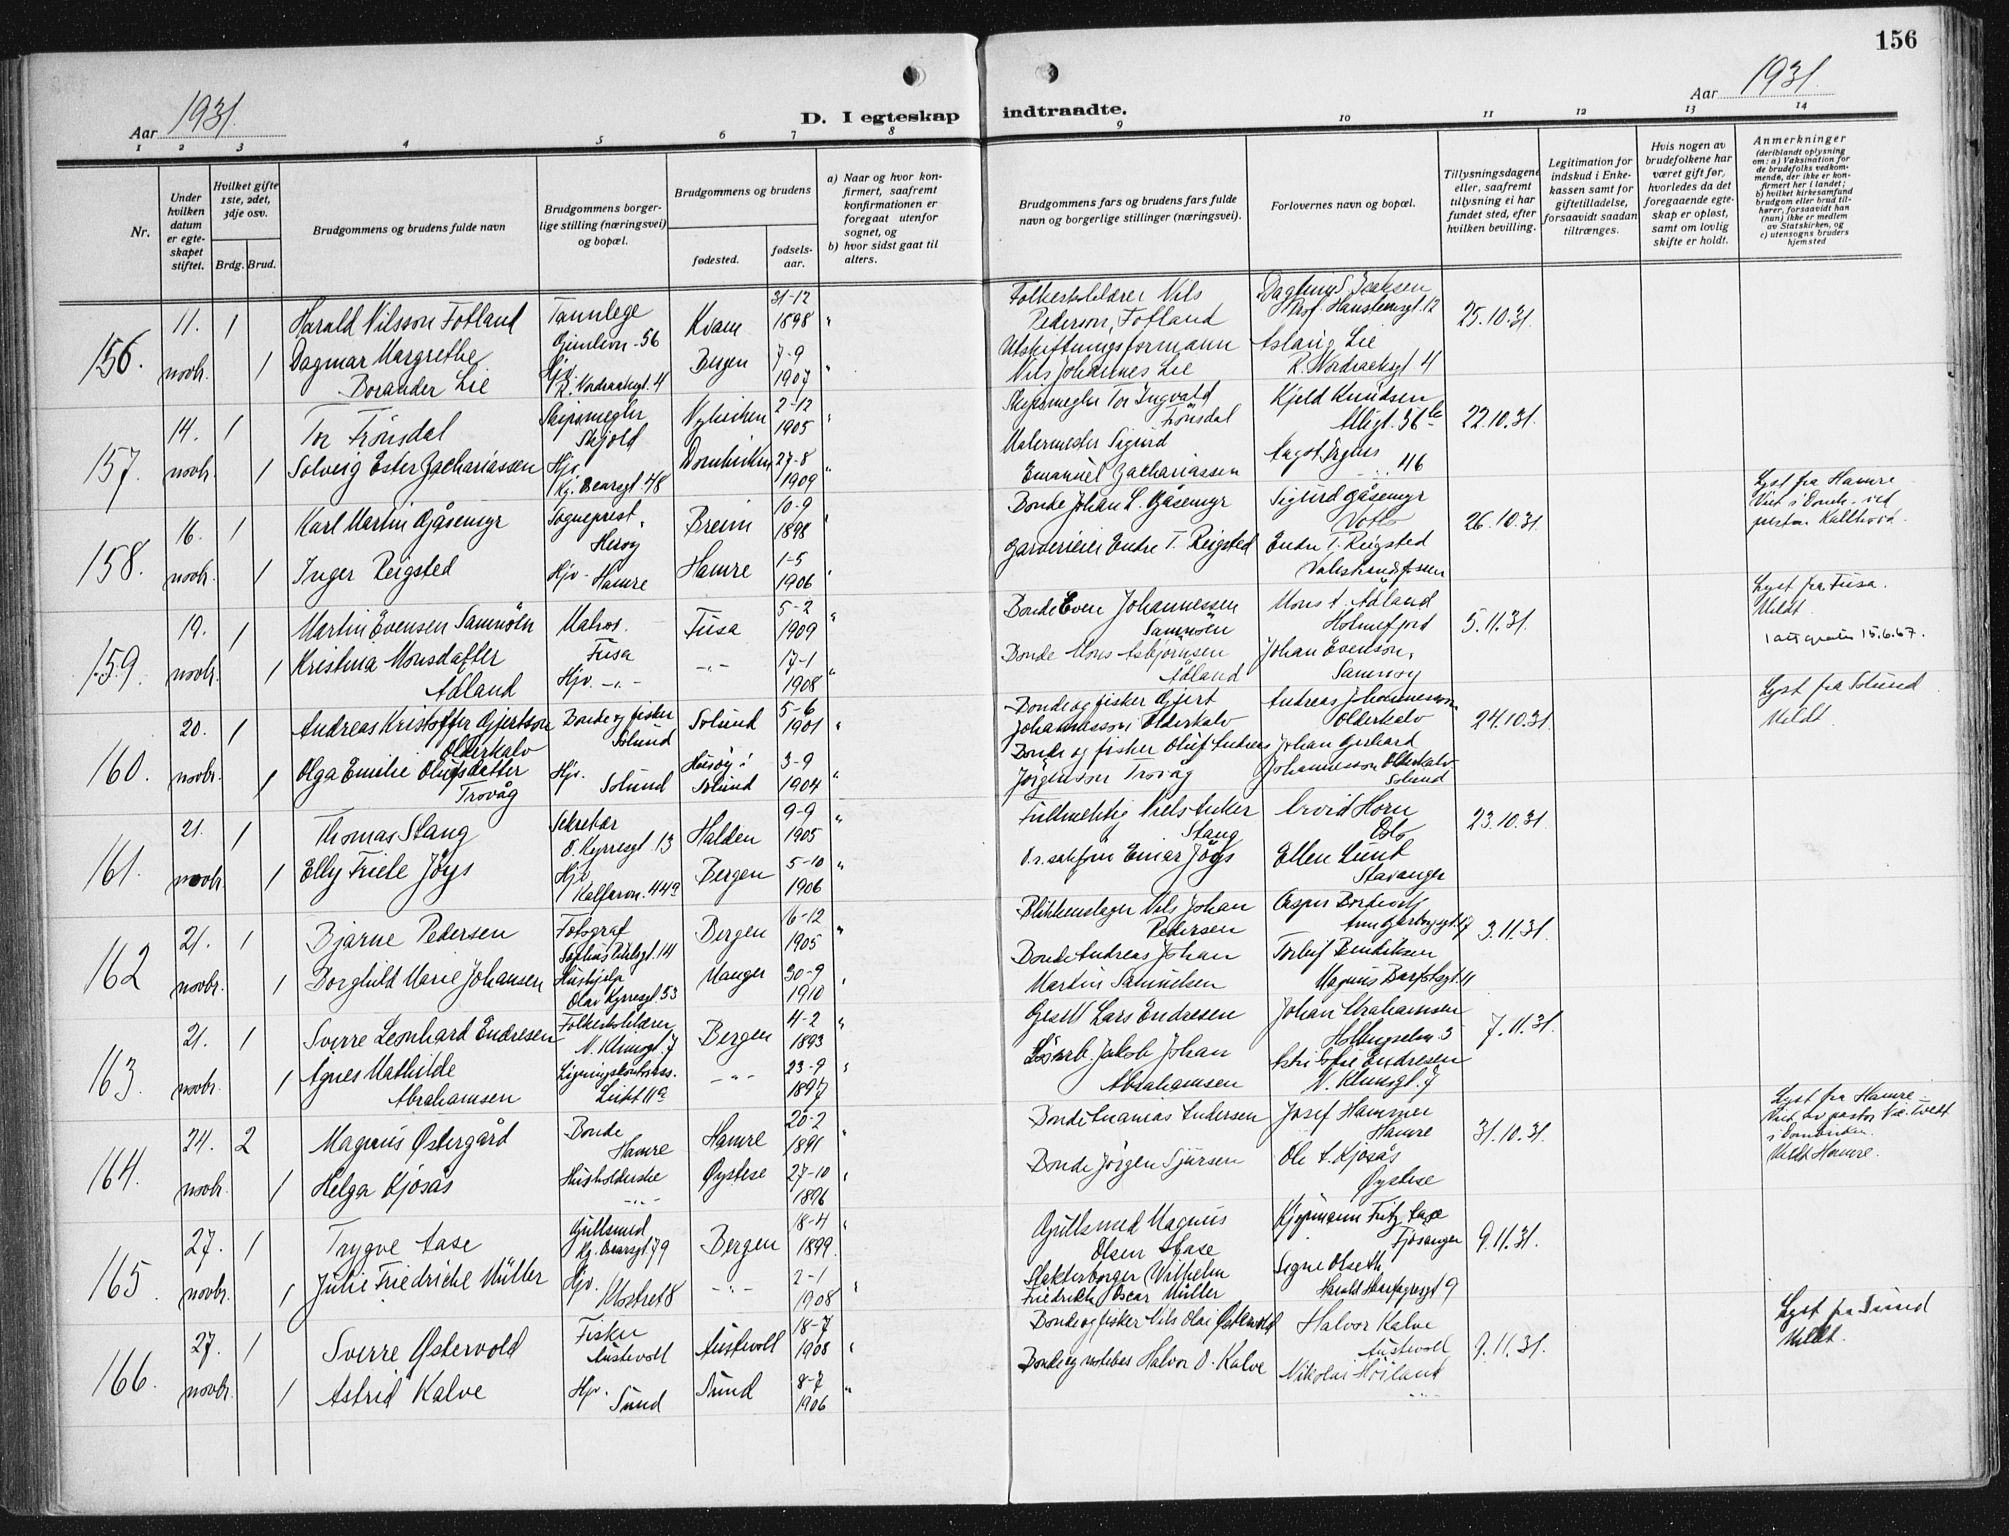 156
Aar 1931.
D. I egteskap indtraadte.
Aar 1931.
1 2 3 4 5 6 7 8 9 10 11 12 13 14
Nr.
Under hvilken datum er egteskapet stiftet.
Hvilket gifte 1ste, 2det, 3dje osv.
Brdg. Brud.
Brudgommens og brudens fulde navn
Brudgommens borgerlige stilling (næringsvei) og bopæl.
Brudgommens og brudens
fødested.
fødselsaar.
a) Naar og hvor konfirmert, saafremt konfirmationen er foregaat utenfor sognet, og
b) hvor sidst gaat til alters.
Brudgommens fars og brudens fars fulde navn og borgerlige stillinger (næringsvei).
Forlovernes navn og bopæl.
Tillysningsdagene eller, saafremt tillysning ei har fundet sted, efter hvilken bevilling.
Legitimation for indskud i Enkekassen samt for giftetilladelse, forsaavidt saadan tiltrænges.
Hvis nogen av brudefolkene har været gift før, hvorledes da det foregaaende egteskap er opløst, samt om lovlig skifte er holdt.
Anmerkninger
(deriblandt oplysning om: a) Vaksination for de brudefolks vedkommende, der ikke er konfirmert her i landet; b) hvilket kirkesamfund brudgom eller brud tilhører, forsaavidt han (hun) ikke er medlem av Statskirken, og c) utensogns bruders hjemsted
156. 11. novbr. 1
Harald Nilsson Fotland
Tannlege
56
Kvam
31-12 1898 "
Folkeskolelærer Nils Pederson Fotland
Prof. Hansteensgt. 12
25.10.31.
1
Dagmar Margrethe Dorander Lie
Hjv. R. Nordraaksgt. 4
Bergen
7-9 1907 "
Utskiftningsformann Nils Johannes Lie
Aslaug Lie
R. Nordraaksgt 4
157. 14. novbr. 1
Tor Frønsdal
Skipsmegler
Skjold
Nykirken
2-12 1905 "
Skipsmegler Tor Ingvald Frønsdal
Kjeld Knudsen
22.10.31.
1
Solveig Ester Zachariassen
Hjv. Kg. Oscarsgt. 48
Domkirken
27-8 1909 "
Malermester Sigurd Emanuel Zachariassen
46
158. 16. novbr. 1
Karl Martin Gåsemyr
Sogneprest,
Herøy
Breim
10-9 1898 "
Bonde Johan L. Gåsemyr
Sigurd Gåsemyr
26.10.31.
Lyst fra Hamre
1
Inger Reigsted
Hjv. Hamre
Hamre
1-5 1906 "
Gardeier Endre T. Reigsted
Endre T. Reigsted
Valestrandsfossen
159. 19. novbr. 1
Martin Evensen Samnöen
Matros.
Fusa
Fusa
5-2 1909 "
Bonde Even Johannessen Samnöen
Mons A. Ådland
Holmefjord
5.11.31.
Lyst fra Fusa.
Meldt.
1 att gratis 15.6.67.
1
Kristina Monsdatter Ådland
Hjv. -"-
-"-
17-1 1908 "
Bonde Mons Asbjørnsen Ådland
Johan Evenson,
Samnøy
160. 20. novbr. 1
Andreas Kristoffer Gjertson Olderkalv
Bonde og fisker
Solund
Solund
5-6 1901 "
Bonde og fisker Gjert Johannesson Olderkalv
Andreas Johannesson Olderkalv
24.10.31.
Lyst fra Solund
Meldt.
1
Olga Emilie Olufsdatter Trovåg
Hjv. Solund
Solund
3-9 1904 "
Bonde og fisker Oluf Andreas Jörgenson Trovåg
Johan Gerhard Johannesson Olderkalv
Solund
161. 21. novbr. 1
Thomas Stang
Sekretær
O. Kyrresgt. 13
Halden
9-9 1905 "
Fullmektig Niels Anker Stang
Arvid Horn
Oslo
23.10.31.
1
Elly Friele Jöys
Hjv. Kalfarvn. 44a
Bergen
5-10 1906 "
O.r.sakfører Einar Jöys
Ellen Lund
Stavanger
162 21. novbr. 1
Bjarne Pedersen
Fotograf
14
Bergen
16-12 1905 "
Blikkenslager Nils Johan Pedersen
3.11.31.
1
Borghild Marie Johansen
Hushjelp
Olav Kyrresgt. 53
Manger
30-9 1910 "
Bonde Andreas Johan Martin Samuelsen
Torleif Bendiksen
Magnus Barfotsgt. 11
163 21. novbr. 1
Sverre Leonhard Endresen
Folkeskolelærer
Bergen
4-2 1893 "
Lars Endresen
Johan Abrahamsen
7.11.31.
1
Agnes Mathilde Abrahamsen
-"-
23-9 1897 "
Jakob Johan Abrahamsen
Astri Sofie Endresen
164. 24. novbr. 2
Magnus Østergård
Bonde
Hamre
Hamre
20-2 1891 "
Bonde Ananias Andersen
Josef Hammer
Hamre
31.10.31.
Lyst fra Hamre
Meldt Hamre.
1
Helga Kjosås
Husholderske
-"-
Øystese
27-10 1896 "
Bonde Jørgen Sjursen
Ole A. Kjosås
Øystese
165. 27. novbr. 1
Trygve Aase
Gullsmed
Kg. Oscarsgt. 79
Bergen
18-4 1899. "
Gullsmed Magnus Olsen Aase
Kjøpmann Fritz Aase
Fjøsanger
9.11.31.
1
Julie Friedriche Müller
Hjv. Klostret 8
-"-
2-1 1908 "
Slakterborger Wilhelm Friedrich Oscar Müller
Signe Olseth,
Harald Haarfagresgt 9
166. 27. novbr. 1
Sverre Østervold
Fisker
Austevoll
Austevoll
18-7 1908 "
Bonde og fisker Nils Olai Østervold
Halvor Kalve
Austevoll
9.11.31.
Lyst fra Sund
Meldt.
1
Astrid Kalve
Hjv. Sund
Sund
8-7 1906 "
Bonde og notebas Halvor O. Kalve
Nikolai Höiland
-"-